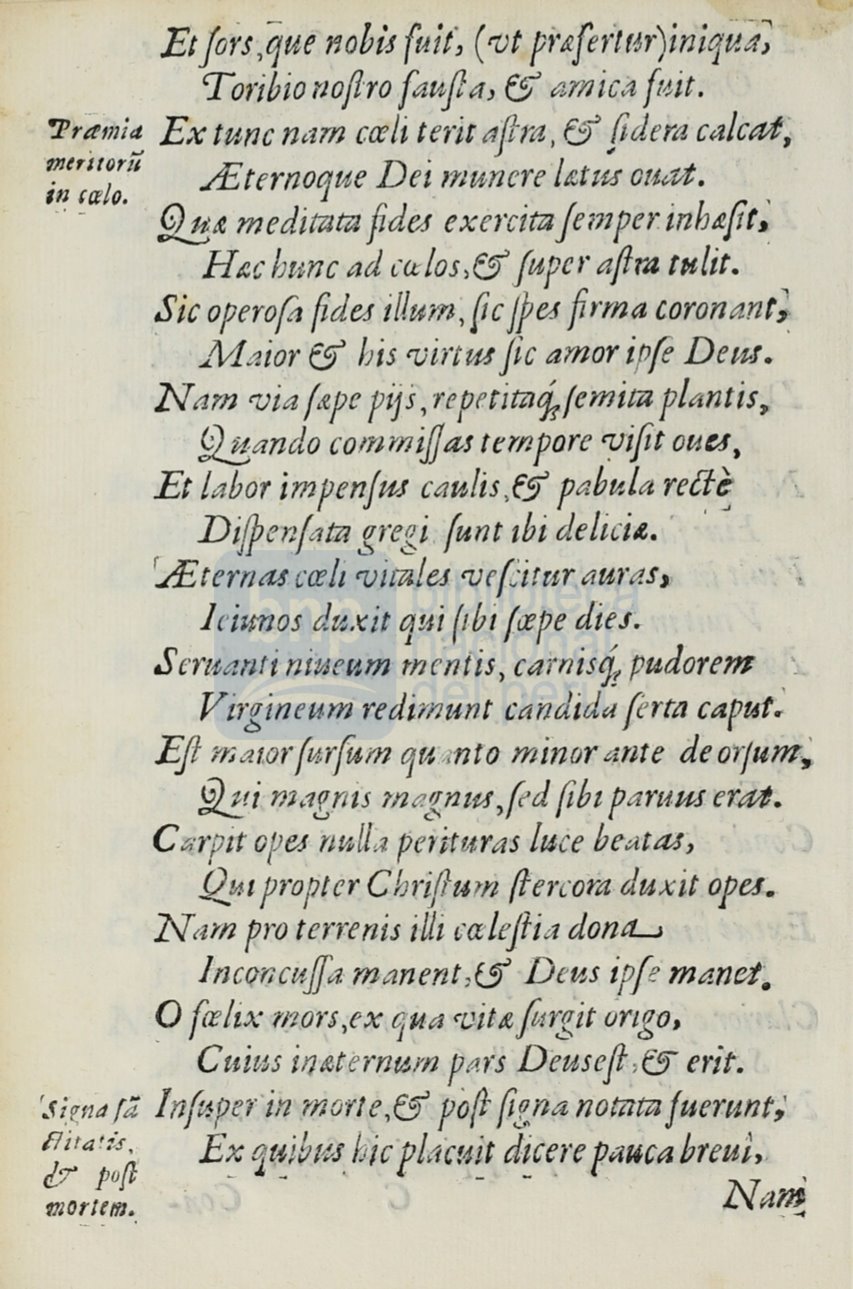 Et ſors, que nobis fuit, (vt præfertur) iniqua,
Toribio noſtro fauſta, & amica fuit.
Præmia
meritorũ
in cœlo.
Ex tunc nam cœli terit aſtra, & ſidera calcat,
Æternoque Dei munere lætus ouat.
Quæ meditata fides exercita ſemper inhæſit,
Hæc hunc ad cœlos, & ſuper aſtra tulit.
Sic operoſa fides illum, ſic ſpes firma coronant,
Maior & his virtus ſic amor ipſe Deus.
Nam via ſæpe pijs, repetitaq́; ſemita plantis,
Quando commiſſas tempore viſit oues,
Et labor impenſus caulis, & pabula rectè
Diſpenſata gregi ſunt ibi deliciæ.
Æternas cœli vitales veſcitur auras,
Ieiunos duxit qui ſibi ſœpe dies.
Seruanti niueum mentis, carnisq́; pudorem
Virgineum redimunt candida ſerta caput.
Eſt maior ſurſum quanto minor ante deorſum,
Qui magnis magnus, ſed ſibi paruus erat.
Carpit opes nulla perituras luce beatas,
Qui propter Chriſtum ſtercora duxit opes.
Nam pro terrenis illi cœleſtia dona
Inconcuſſa manent, & Deus ipſe manet.
O fœlix mors, ex qua vitæ ſurgit origo,
Cuius inæternum pars Deus eſt, & erit.
Signa ſã
ctitatis,
& poſt
mortem.
Inſuper in morte, & pòſt ſigna notata fuerunt,
Ex quibus hic placuit dicere pauca breui,
Nam